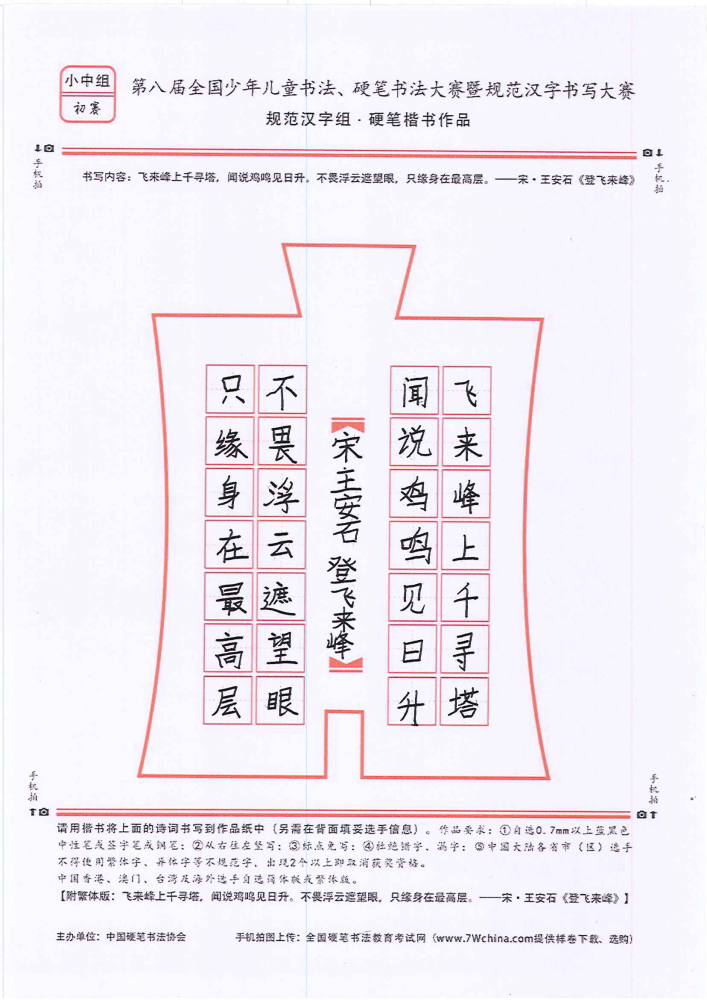 小中组
初赛
第八届全国少年儿童书法、硬笔书法大赛暨规范汉字书写大赛
规范汉字组·硬笔楷书作品
手机拍
手机拍
书写内容:飞来峰上千寻塔,闻说鸡鸣见日升。不畏浮云遮望眼,只缘身在最高层。——宋·王安石《登飞来峰》
飞来峰上千寻塔
闻说鸡鸣见日升
宋王安石 登飞来峰
不畏浮云遮望眼
只缘身在最高层
手机拍
手机拍
请用楷书将上面的诗词书写到作品纸中(另需在背面填妥选手信息)。作品要求:①自选0.7mm以上蓝黑色
中性笔或签字笔或钢笔;②从右往左竖写;③标点免写;④杜绝错字、漏字;⑤中国大陆各省市(区)选手
不得使用繁体字、异体字等不规范字,出现2个以上即取消获奖资格。
中国香港、澳门、台湾及海外选手自选简体版或繁体版。
【附繁体版:飞来峰上千寻塔,闻说鸡鸣见日升。不畏浮云遮望眼,只缘身在最高层。——宋·王安石《登飞来峰》】
主办单位:中国硬笔书法协会
手机拍图上传:全国硬笔书法教育考试网(www.7Wchina.com提供样卷下载、选购)